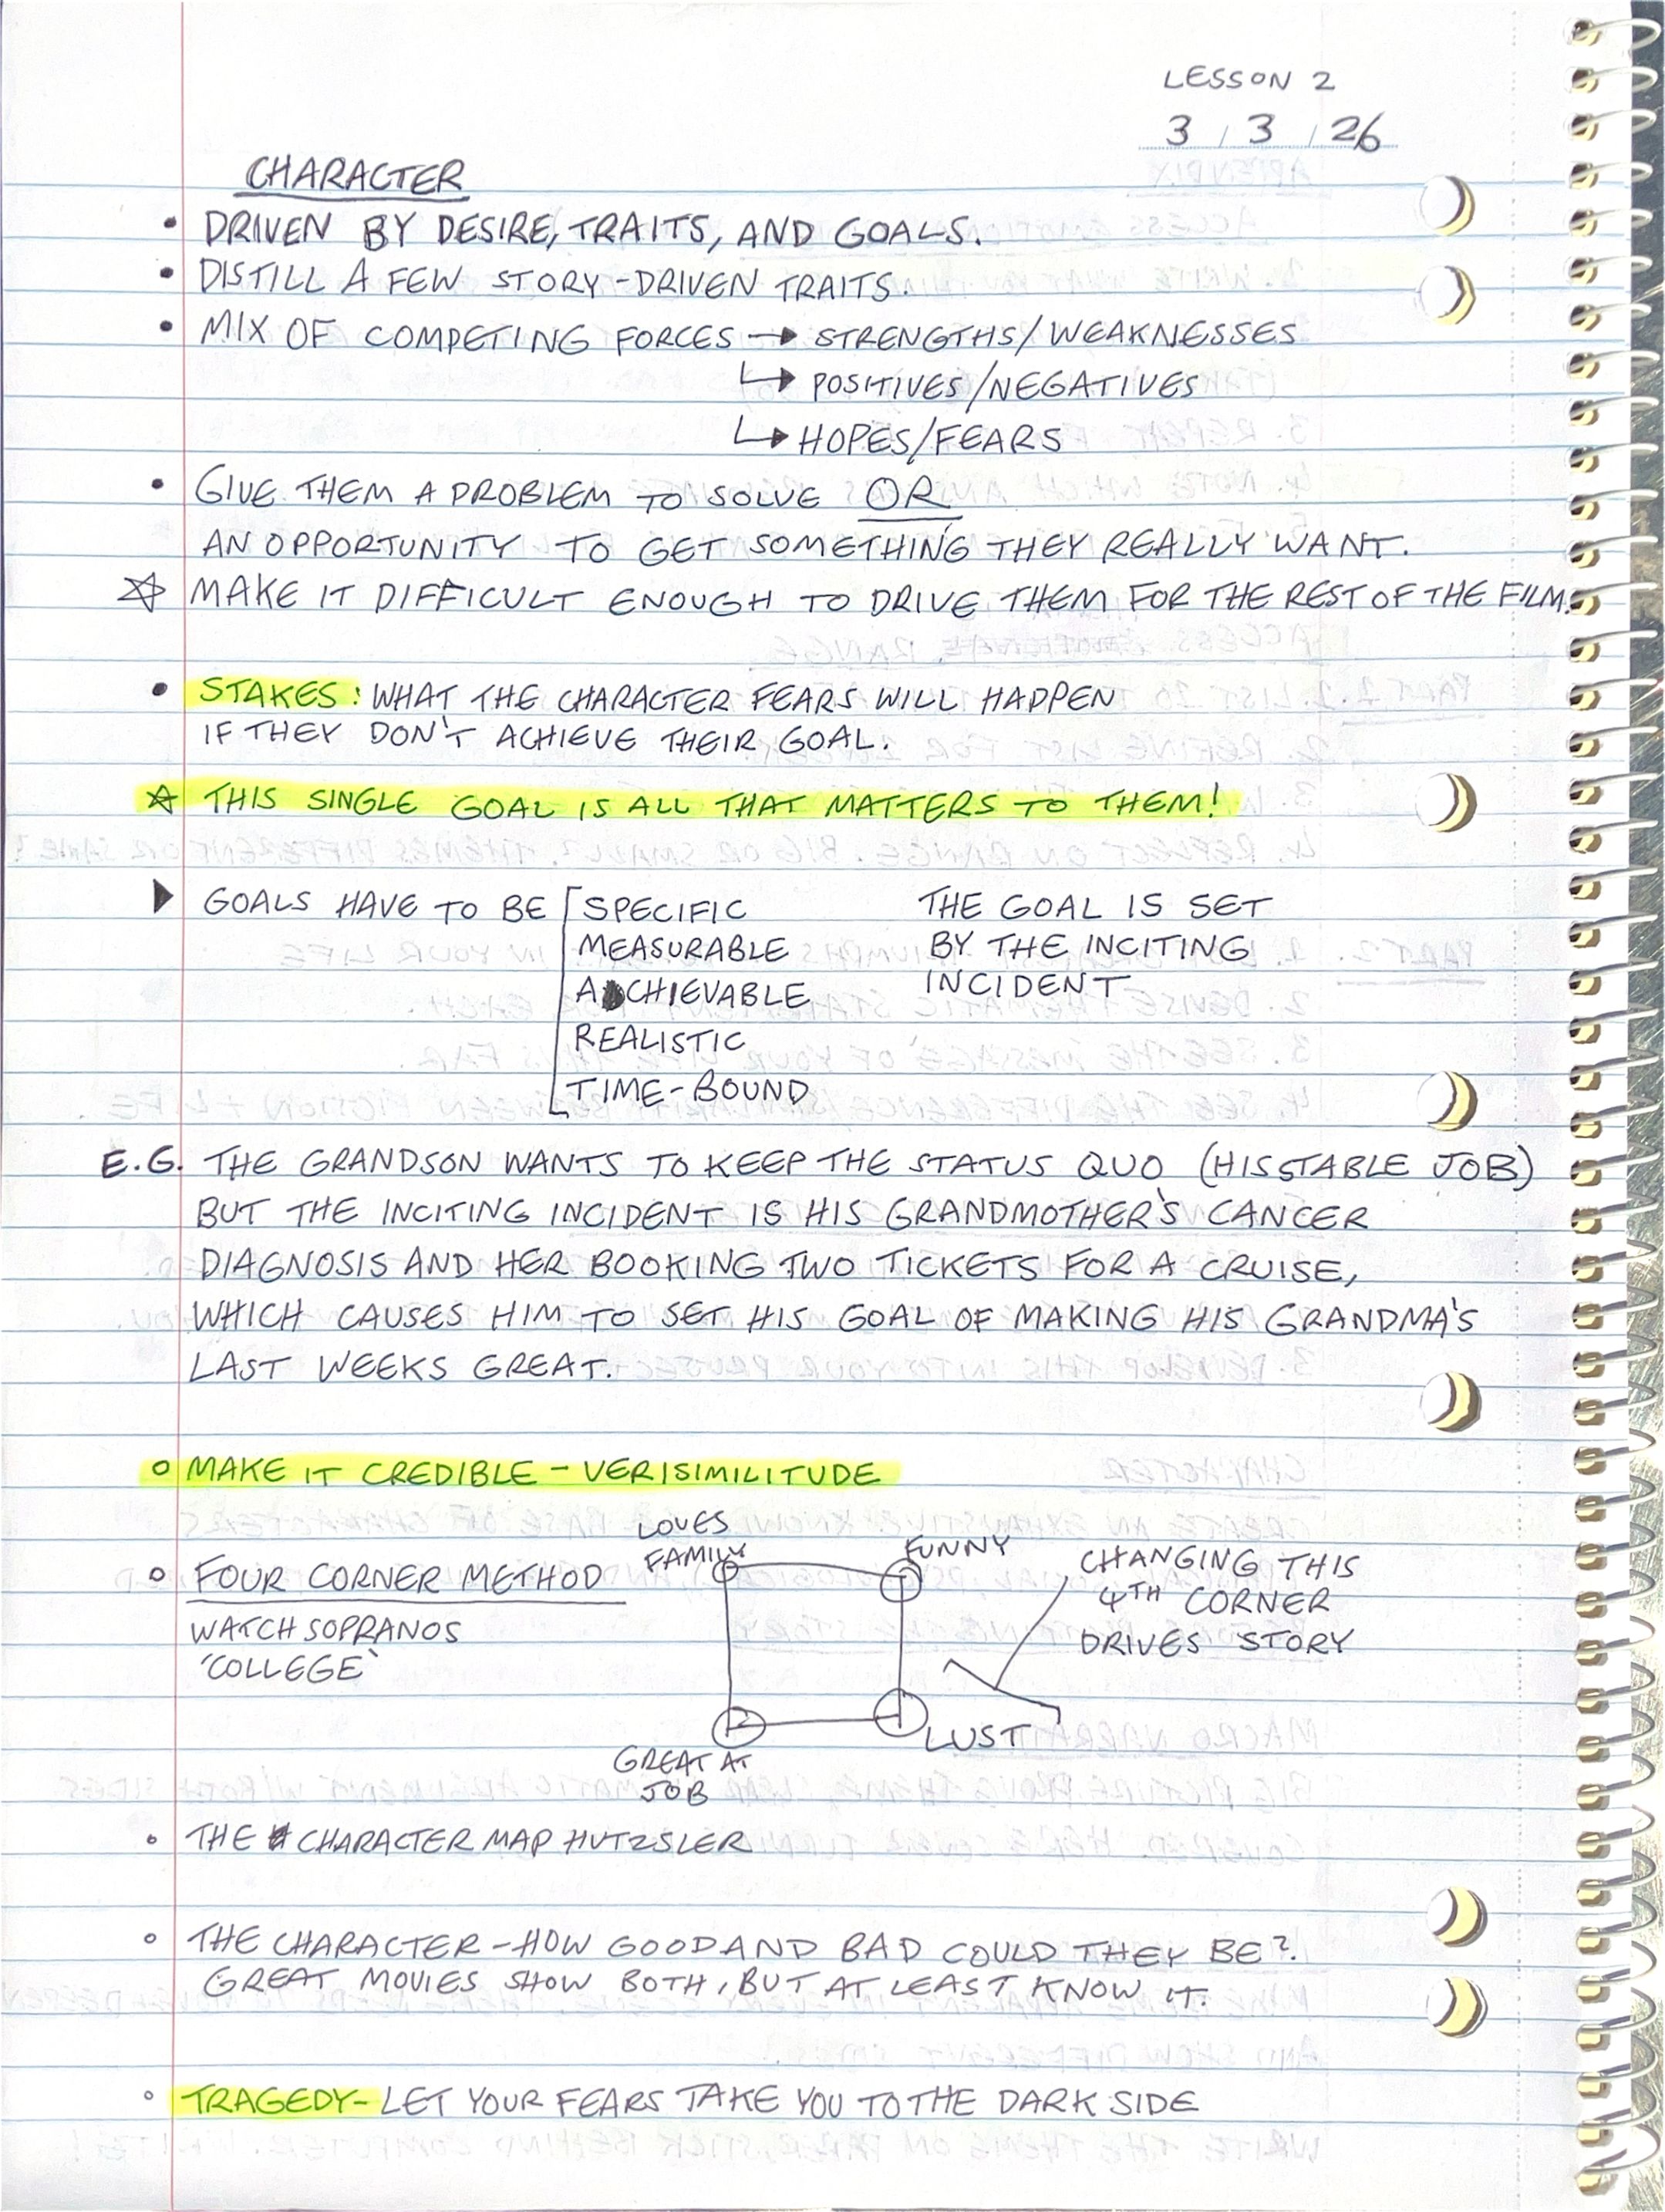 LESSON 2
3 / 3 / 26
CHARACTER
• DRIVEN BY DESIRE, TRAITS, AND GOALS.
• DISTILL A FEW STORY-DRIVEN TRAITS.
• MIX OF COMPETING FORCES → STRENGTHS/WEAKNESSES
↳ POSITIVES/NEGATIVES
↳ HOPES/FEARS
• GIVE THEM A PROBLEM TO SOLVE OR
AN OPPORTUNITY TO GET SOMETHING THEY REALLY WANT.
☆ MAKE IT DIFFICULT ENOUGH TO DRIVE THEM FOR THE REST OF THE FILM.
• STAKES: WHAT THE CHARACTER FEARS WILL HAPPEN
IF THEY DON'T ACHIEVE THEIR GOAL.
☆ THIS SINGLE GOAL IS ALL THAT MATTERS TO THEM!
▶ GOALS HAVE TO BE [ SPECIFIC
MEASURABLE
ACHIEVABLE
REALISTIC
TIME-BOUND
THE GOAL IS SET
BY THE INCITING
INCIDENT
E.G. THE GRANDSON WANTS TO KEEP THE STATUS QUO (HIS STABLE JOB)
BUT THE INCITING INCIDENT IS HIS GRANDMOTHER'S CANCER
DIAGNOSIS AND HER BOOKING TWO TICKETS FOR A CRUISE,
WHICH CAUSES HIM TO SET HIS GOAL OF MAKING HIS GRANDMA'S
LAST WEEKS GREAT.
○ MAKE IT CREDIBLE - VERISIMILITUDE
○ FOUR CORNER METHOD
WATCH SOPRANOS
'COLLEGE'
LOVES
FAMILY
FUNNY
GREAT AT
JOB
LUST
CHANGING THIS
4TH CORNER
DRIVES STORY
○ THE CHARACTER MAP HUTZSLER
○ THE CHARACTER - HOW GOOD AND BAD COULD THEY BE?
GREAT MOVIES SHOW BOTH, BUT AT LEAST KNOW IT.
○ TRAGEDY - LET YOUR FEARS TAKE YOU TO THE DARK SIDE